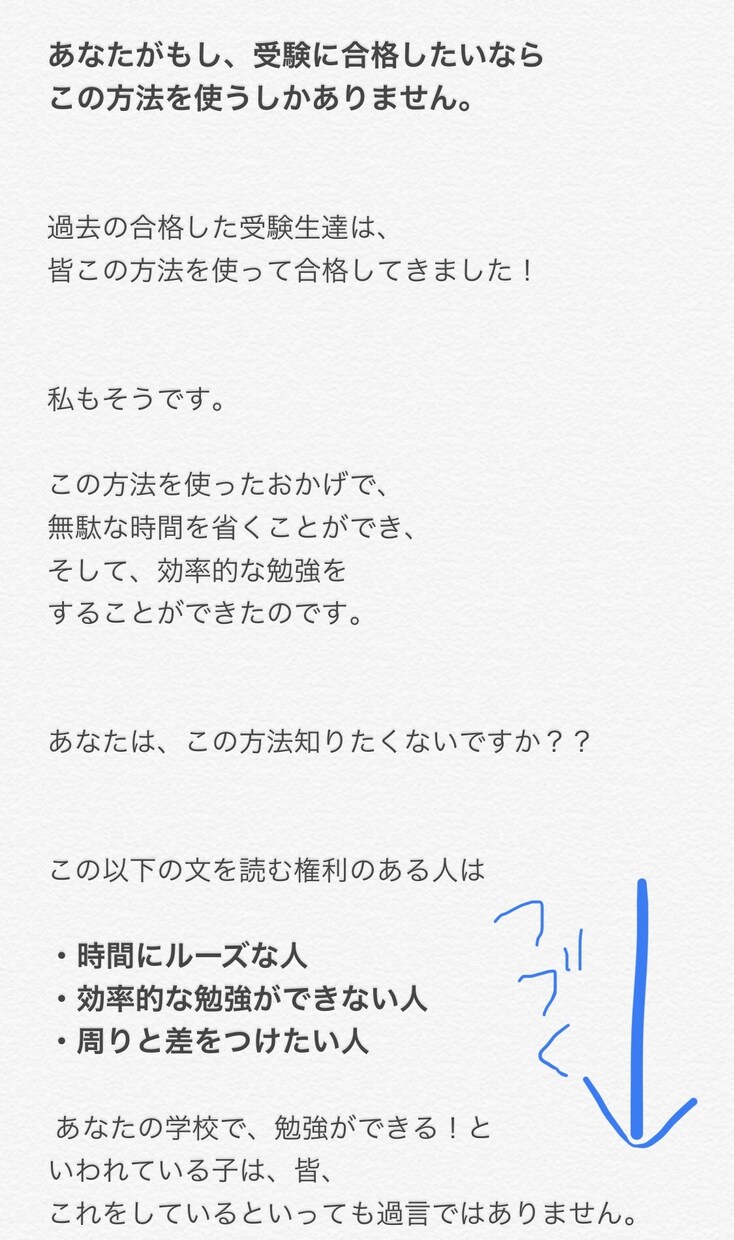 あなたがもし、受験に合格したいなら
この方法を使うしかありません。
過去の合格した受験生達は、
皆この方法を使って合格してきました！
私もそうです。
この方法を使ったおかげで、
無駄な時間を省くことができ、
そして、効率的な勉強を
することができたのです。
あなたは、この方法知りたくないですか？？
この以下の文を読む権利のある人は
・時間にルーズな人
・効率的な勉強ができない人
・周りと差をつけたい人
つづく
あなたの学校で、勉強ができる！と
いわれている子は、皆、
これをしているといっても過言ではありません。